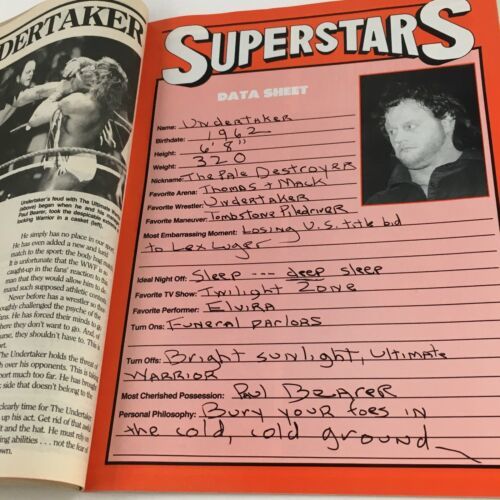 NDERTAKER
Undertaker's feud with The Ultimate
(above) began when he and his
Paul Bearer, took the despicable
locking Warrior in a casket (left).
He simply has no place in our
He has even added a new and
match to the sport: the body bag
caught-up in the fans' reaction to this
It is unfortunate that the WWF is so
man that they would allow him to de-
mand such supposed athletic
Never before has a wrestler so
roughly challenged the psyche of the
fans. He has forced their minds to go
there they don't want to go. And, of
urse, they shouldn't have to. This is
ort.
The Undertaker holds the threat of
h over his opponents. This time
port much too far. He has brought
side that doesn't belong to the
clearly time for The Undertaker
up his act. Get rid of that
it and the hat. He must rely on
ing abilities . . . not the fear of
own.
SUPERSTARS
DATA SHEET
Name: Undertaker
Birthdate: 1962
Height: 6'8"
Weight: 320
Nickname: The Pale Destroyer
Favorite Arena: Thomas + Mack
Favorite Wrestler: Undertaker
Favorite Maneuver: Tombstone Piledriver
Most Embarrassing Moment: Losing U.S. title bid
to Lex Luger
Ideal Night Off: Sleep --- deep sleep
Favorite TV Show: Twilight Zone
Favorite Performer: Elvira
Turn Ons: Funeral parlors
Turn Offs: Bright sunlight, Ultimate
Warrior
Most Cherished Possession: Paul Bearer
Personal Philosophy: Bury your toes in
the cold, cold ground